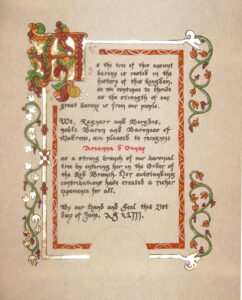 As the tree of this ancient
barony is rooted in the
history of this kingdom,
so we continue to thrive
as the strength of our
great barony is from our people.
We, Ragnarr and Bergdis,
noble Baron and Baroness of
Madrone, are pleased to recognize
Arianna d'
as a strong branch of our baronial
tree by entering her in the Order of
the Red Branch. Her outstanding
contributions have created a richer
experience for all.
By our Hand and Seal this 21st
day of June,